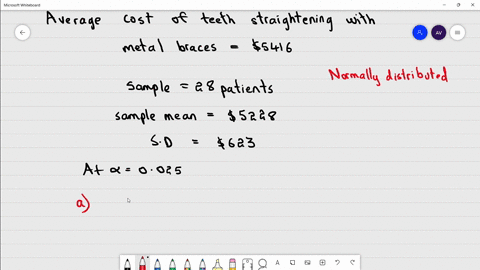 Microsoft Whiteboard
Average cost of teeth straightening with
metal braces = $5416
Normally distributed
sample = 28 patients
sample mean = $5228
S.D = $623
At α = 0.025
a)
AV